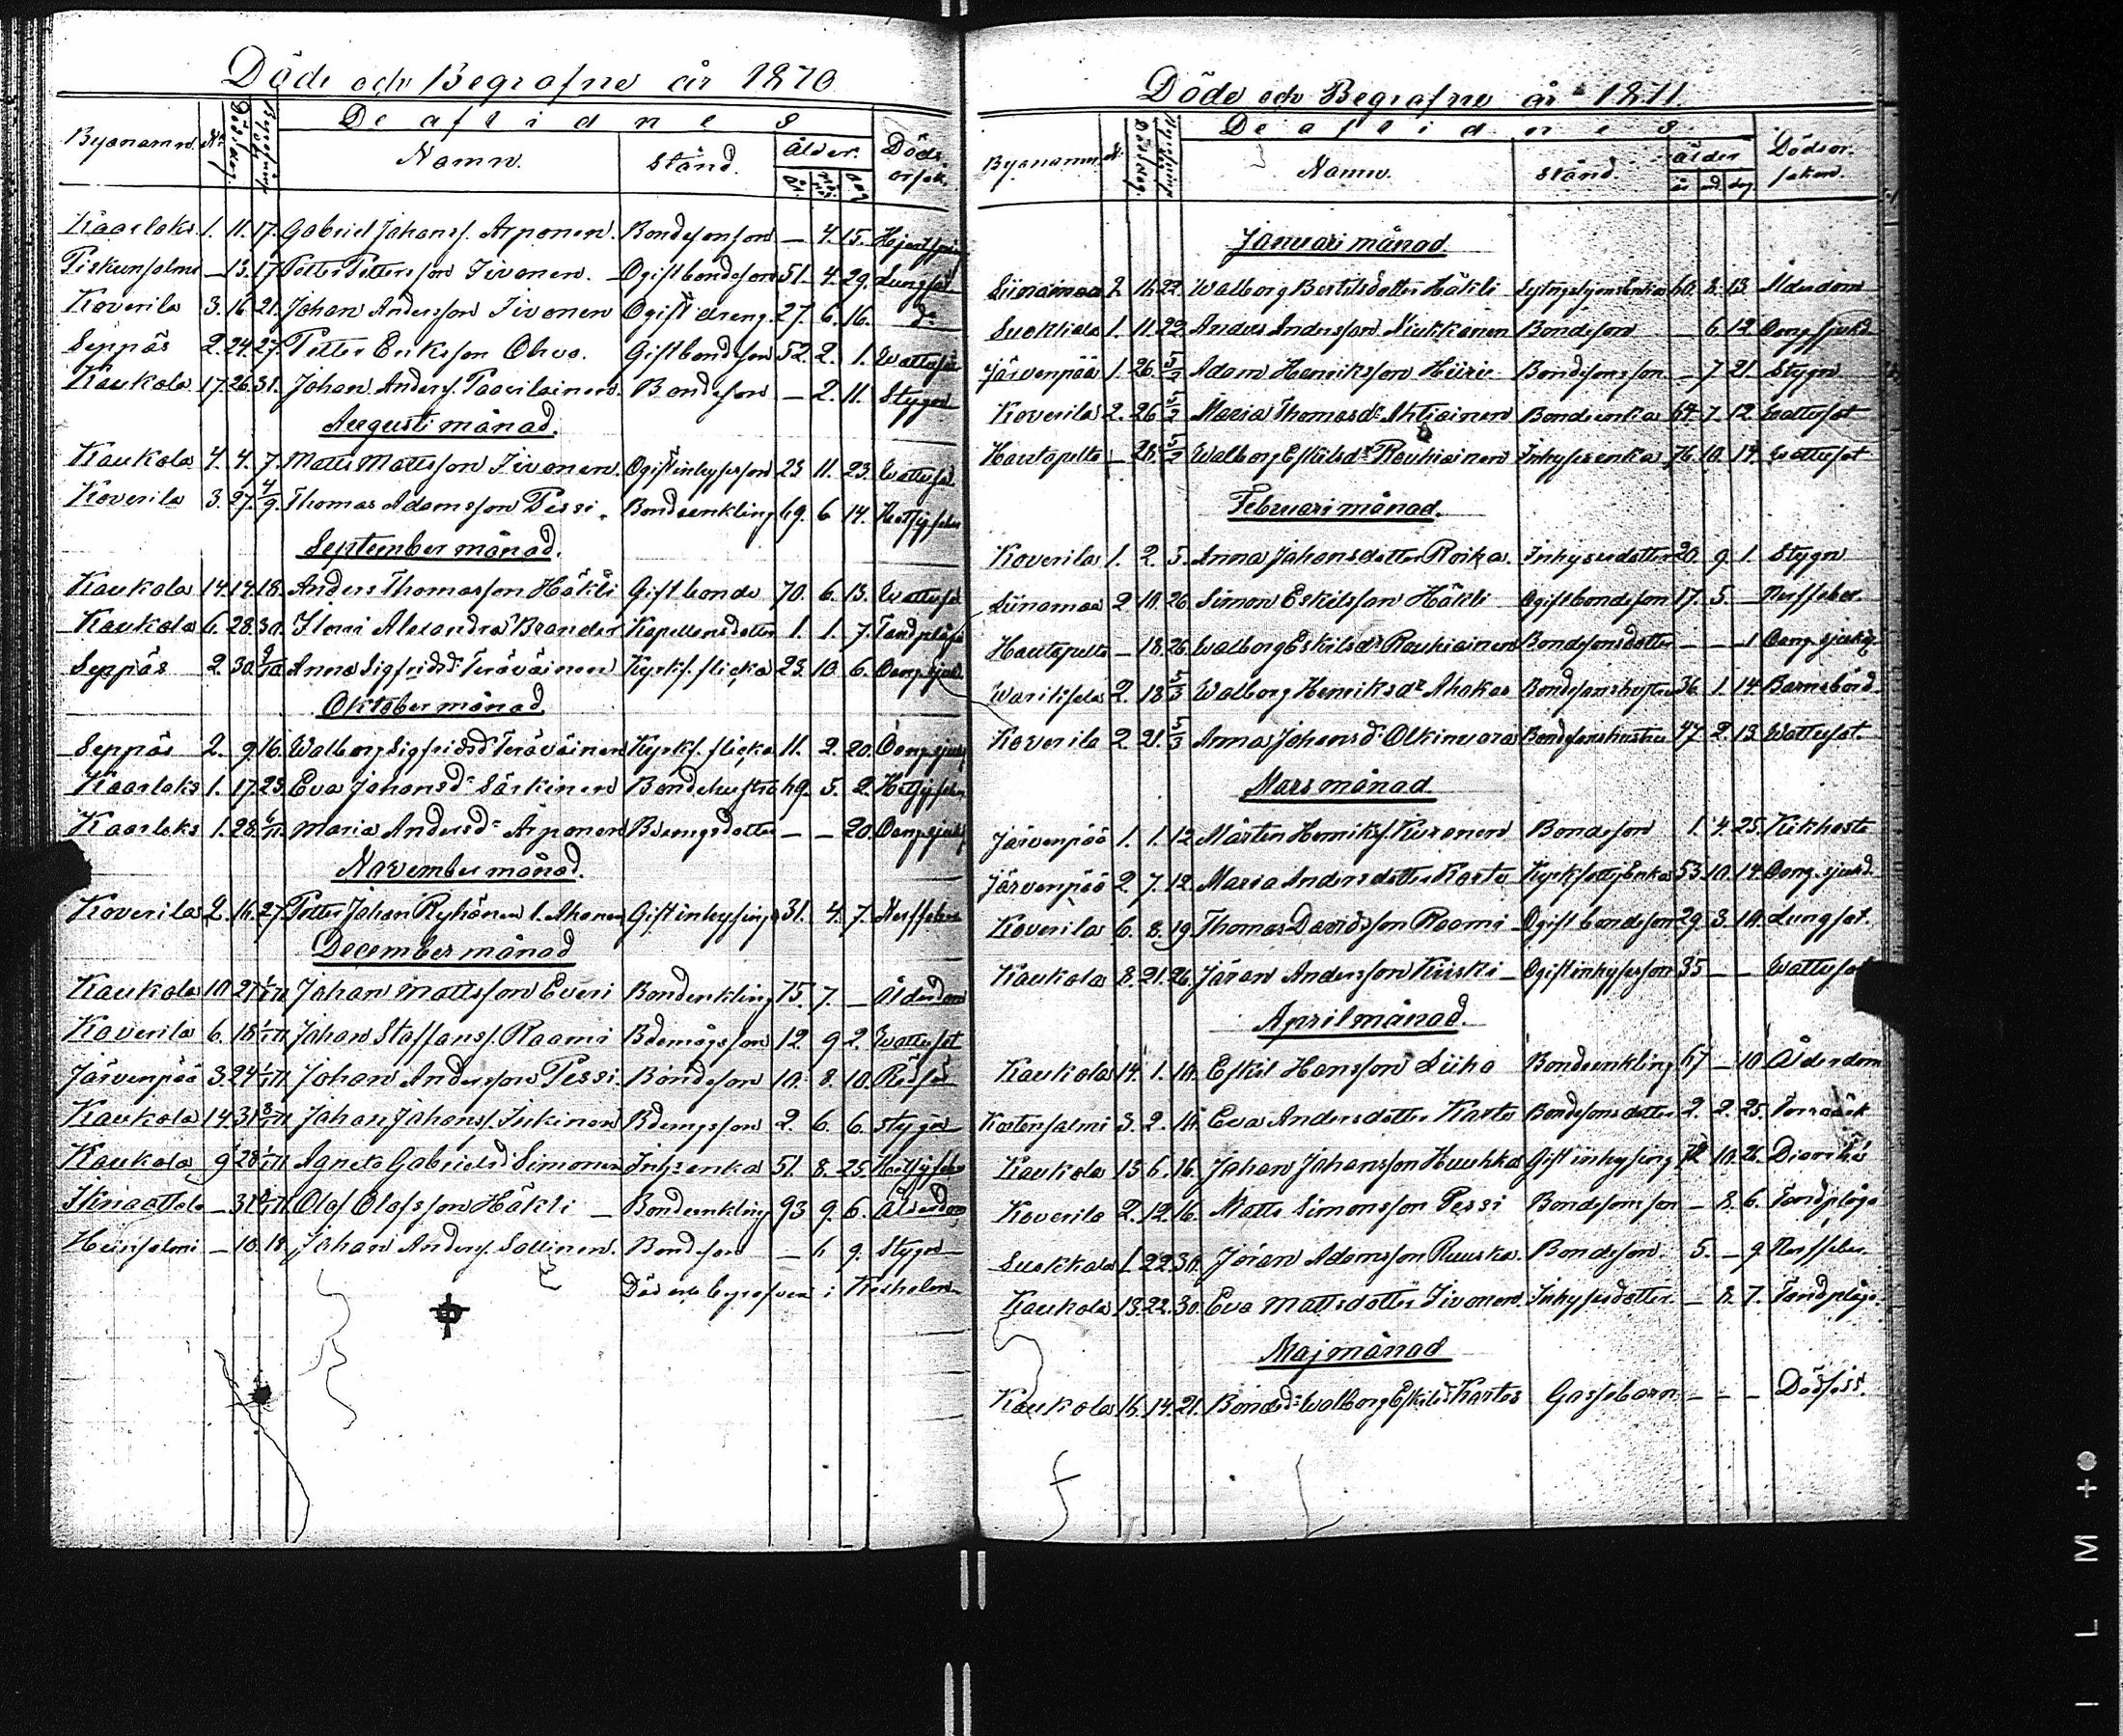 Döde och Begrafne år 1870
Byanamn. No Dödsdag. Begrafnings De aflidnes Namn. Stånd. Ålder. år. mån. dag. Döds orsak.
Kaarlaks 1. 11. 17. Gabriel Johanss. Arponen. Bondesonson — 4. 15.
Piskunsalmi — 13. 17. Petter Pettersson Iivonen. Ogift bondeson 51. 4. 29. Lungsot
Koverila 3. 16. 21. Johan Andersson Iivonen Ogift dreng. 27. 6. 16. do
Seppäs 2. 24. 27. Petter Eriksson Ohvo. Gift bondeson 52. 2. 1. Wattusot
Kaukola 17. 26. 31. Johan Anders. Paavilainen. Bondeson — 2. 11. Stygn
Augusti månad.
Kaukola 4. 4. 7. Matts Mattsson Iivonen. Ogift inhysesson 23 11. 23. Wattusot
Koverila 3. 27. 4/9. Thomas Adamsson Pessi. Bondeenkling 69. 6 14. Hetsig feber
September månad.
Kaukola 14. 14. 18. Anders Thomasson Häkli Gift bonde 70. 6. 13. Wattusot
Kaukola 6. 28. 30. Ilmi Alexandra Brander Kapellansdotter 1. 1. 7. Tandplåga
Seppäs 2. 30. 9/10 Anna Sigfridsdr Teräväinen Kyrks. flicka 23. 10 6. Oang. sjukd.
Oktober månad.
Seppäs 2. 9. 16. Walborg Sigfridsdr Teräväinen Kyrks. flicka 11. 2. 20. Oang. sjukd
Kaarlaks 1. 17. 23. Eva Johansdr Särkinen Bondehustru 69. 5. 2. Hetsig feber
Kaarlaks 1. 28. 6/11. Maria Andersdr Arponen — — 20. Oang. sjukd
November månad.
Koverila 2. 16. 27. Petter Johan Ryhänen l. Ahonen Gift inhysing 31. 4. 7. Nerffeber
December månad
Kaukola 10 27 Johan Mattsson Everi Bondenkling 75. 7. — Ålderdom
Koverila 6. 18 Johan Staffans. Raami Bdemågsson 12. 9 2. Wattusot
Järvenpää 3. 24 Johan Andersson Pessi. Bondeson 10. 8. 10. Rödsot
Kaukola 14. 31 Johan Johans. Inkinen 2. 6. 6. Stygn
Kaukola 9 28 Agneta Gabrielsd. Simonen Inh. enka 51. 8. 25. Hetsig feber
— 31 Olof Olofsson Häkli — Bondeenkling 93 9. 6. Ålderdom
Heinsalmi — 10. 18. Johan Anders. Sallinen. Bondeson — 6 9. Stygn
Död och begrafven i Kexholm
Döde och Begrafne år 1871.
Byanamn. No Dödsdag. Begrafnings De aflidnes Namn. Stånd. Ålder år md. dag. Dödsorsaken.
Januari månad.
Liinamaa 2. 16. 22. Walborg Bertilsdotter Häkli 60. 8. 13. Ålderdom
Suokkala 1. 11. 22. Anders Andersson Kiukkonen Bondeson — 6. 12. Oang. sjukd
Järvenpää 1. 26. 5/2 Adam Henriksson Hiiri Bondesonson — 7 21. Stygn
Koverila 2. 26 5/2 Maria Thomasdr Ahtiainen Bondeenka 64. 7. 12. Wattusot
Hautapelto — 28. 5/2 Walborg Eskilsdr Rouhiainen Inhysesenka 76. 10. 14. Wattusot
Februari månad.
Koverila 1. 2. 5. Anna Johansdotter Roika. Inhysesdotter 20. 9. 1. Stygn
Liinamaa 2 10. 26 Simon Eskilsson Häkli Ogift bondeson 17. 5. — Nerffeber
Hautapelto — 18. 26. Walborg Eskilsdr Rouhiainen Bondesonsdotter — — 1 Oang. sjukd
2. 18 5/3 Walborg Henriksdr Ahokas Bondesonshustru 36. 1. 14. Barnsbörd
Koverila 2. 21. 5/3 Anna Johansdr Olkinuora Bondesonshustru 47 2. 13 Wattusot
Mars månad
Järvenpää 1. 1. 12. Mårten Henriks. Kuronen Bondeson 1. 4. 25. Kikhosta
Järvenpää 2. 7. 12. Maria Andersdotter Karto 53. 10. 14. Oang. sjukd.
Koverila 6. 8. 19. Thomas Davidsson Raami Ogift bondeson 29. 3. 10. Lungsot.
Kaukola 8. 21. 26. Jöran Andersson Kiiski — Ogift inhysesson 35 — — Wattusot
April månad.
Kaukola 14. 1. 10. Eskil Hansson Liiho Bondeenkling 67 — 10 Ålderdom
Kortensalmi 3. 2. 10. Eva Andersdotter Karto Bondesonsdotter 2. 2. 25. Torrvärk
Kaukola 13 6. 16. Johan Johansson Huuhka Gift inhysing 72 10. 26. Diarrhé
Koverila 2. 12. 16. Matts Simonsson Pessi Bondesonson — 8. 6. Tandplåga
Suokkala 1. 22. 30. Jöran Adamsson Ruuska. Bondeson. 5. — 9. Nerffeber
Kaukola 13. 22. 30. Eva Mattsdotter Iivonen. Inhysesdotter. — 8. 7. Tandplåga.
Maj månad
Kaukola 16. 14. 21. Bondedr Walborg Eskilsdr Kartos Gossebarn — — — Dödfödd.